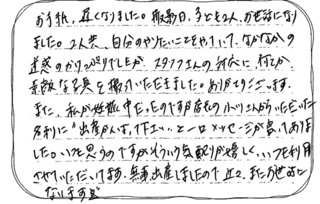 お手紙、遅くなりました。撮影日、子ども2人、お世話になり
ました。2人共、自分のやりたいことをやっていて、なかなかの
迷惑のかけっぷりでしたが、スタッフさんの対応に、
素敵な写真を撮っていただきました。ありがとうございます。
また、私が妊娠中だったのですが、小川さんからいただいた
名刺に"出産がんば"と一口メッセージが書いてありま
した。いつも思うのですが、そういう気配りが嬉しく、いつも利用
させていただいてます。無事出産しましたので、またお世話に
なります